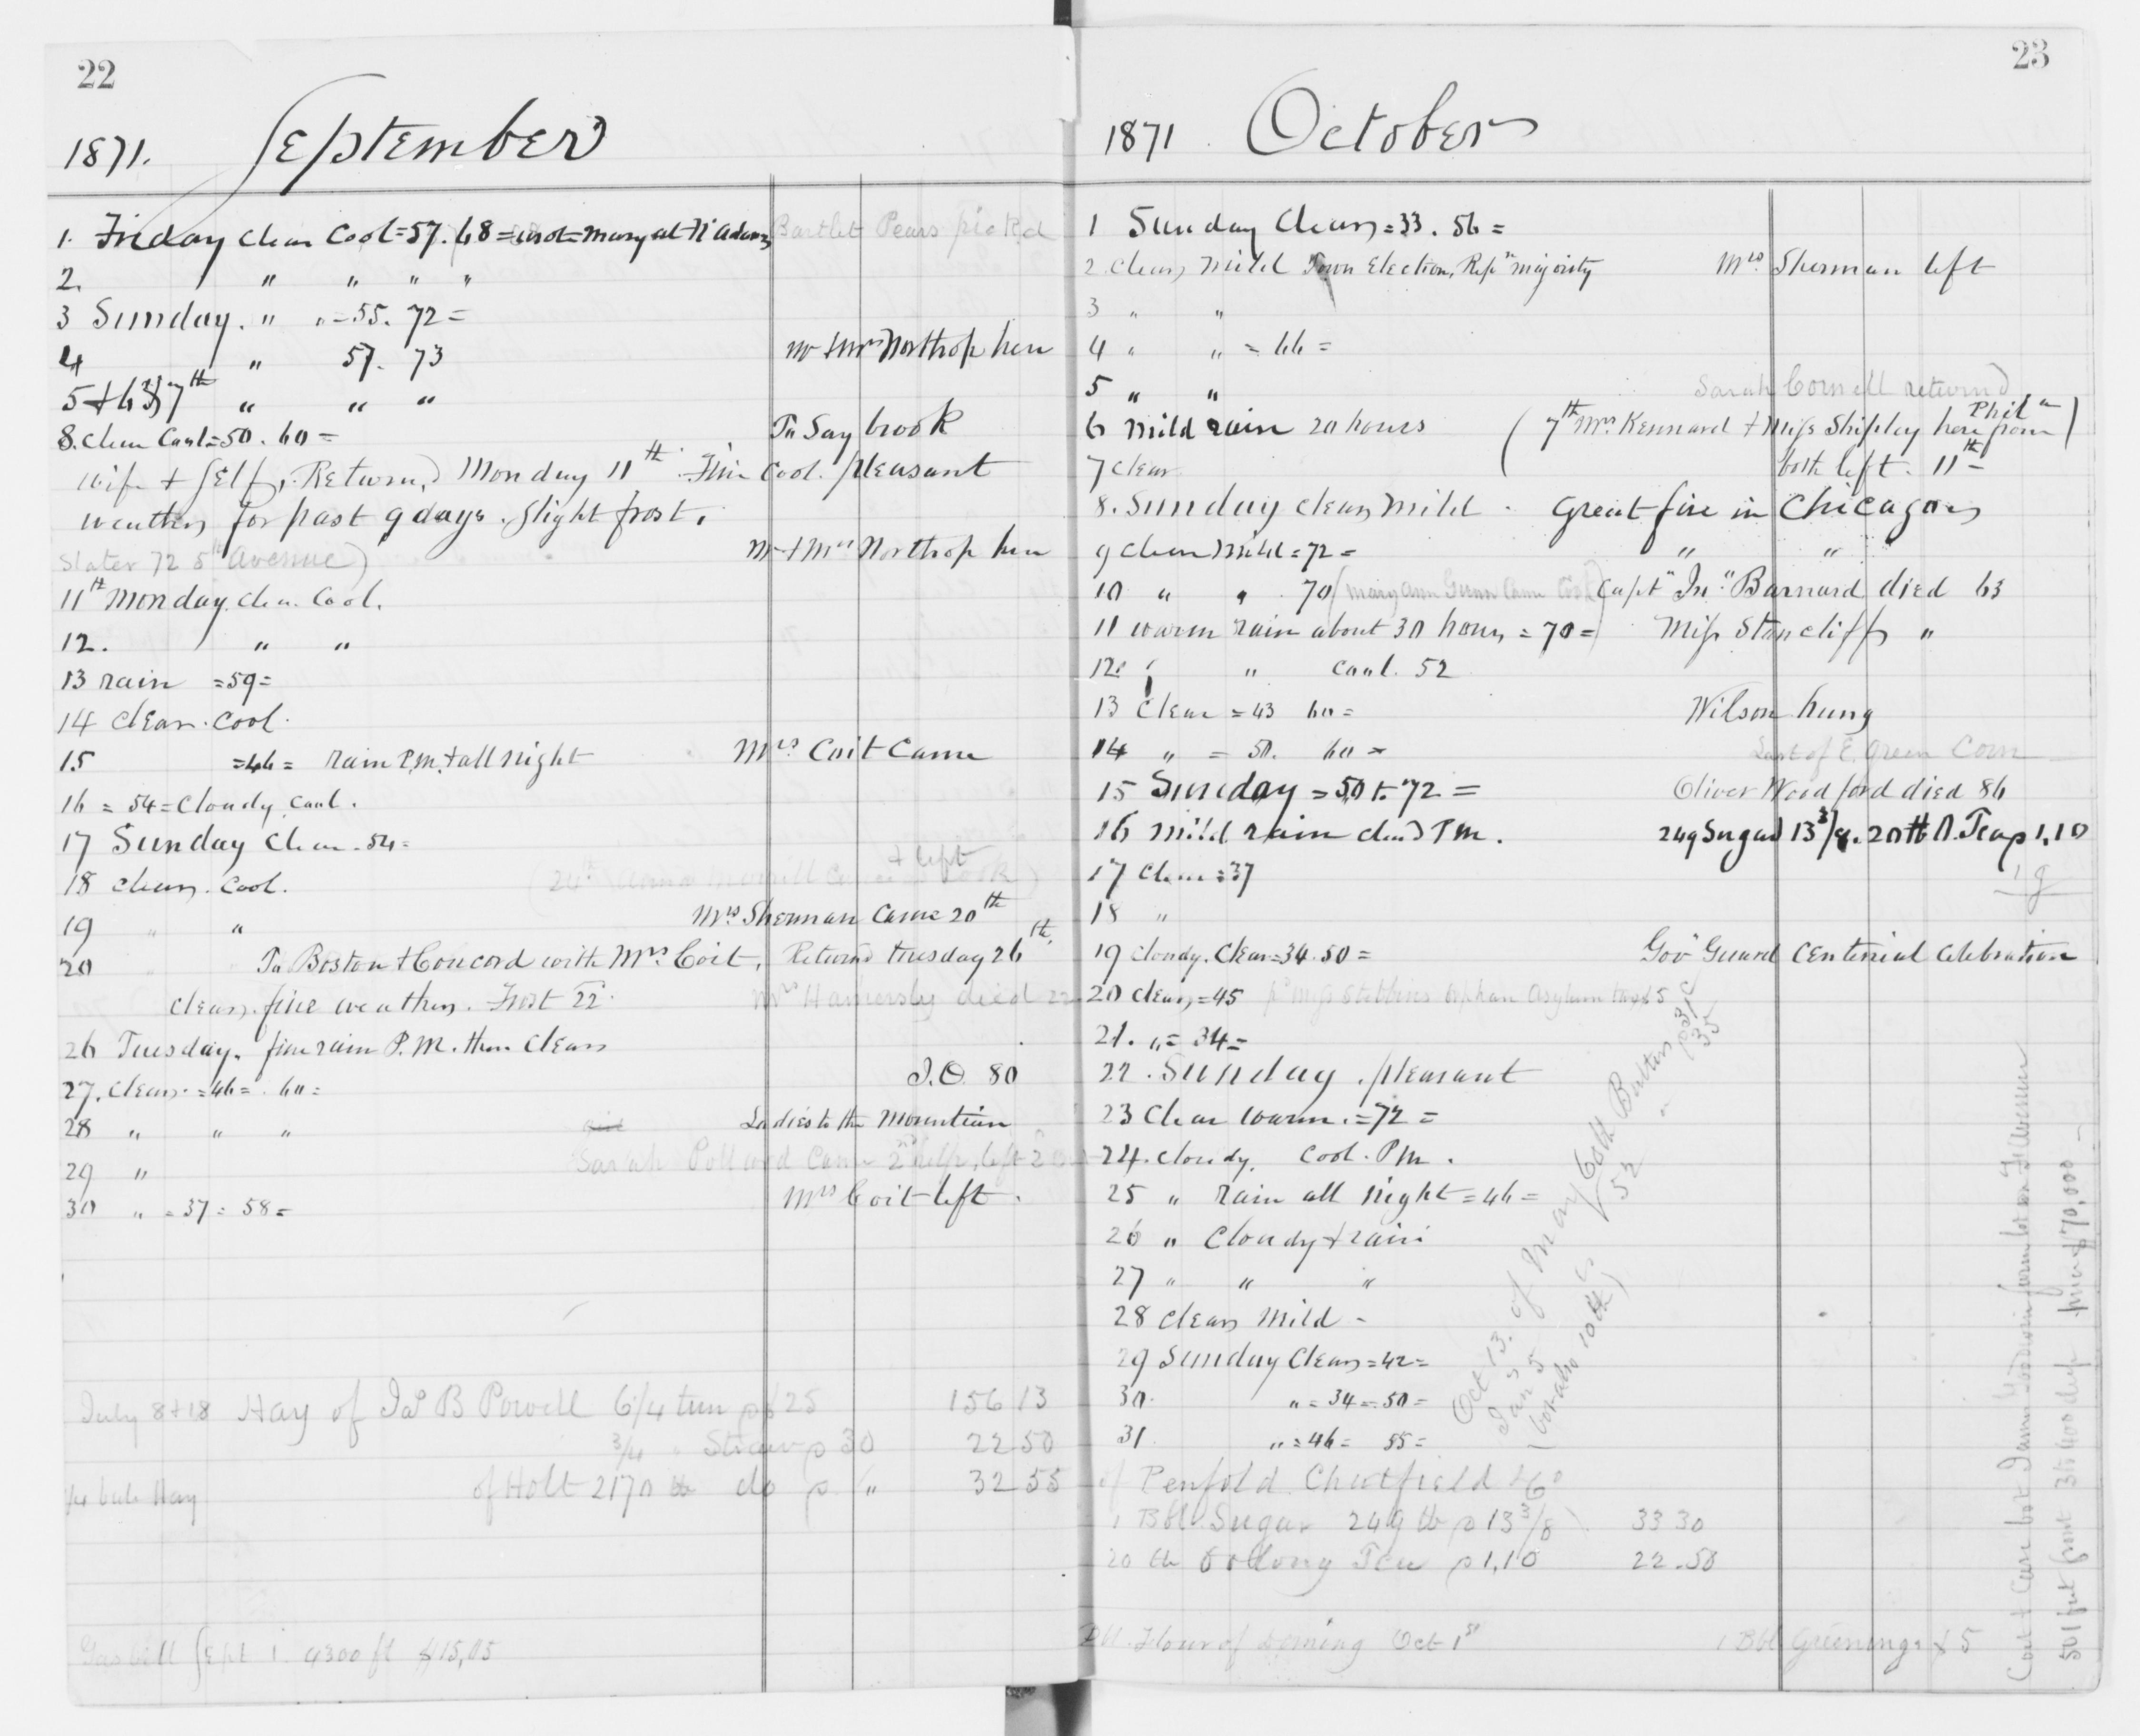 22
1871. September
1. Friday Clear Cool = 57. 68 = Mary at N Adams Bartlet Pears pickd
2. " " " "
3 Sunday. " " = 55. 72 =
4 " 57. 73 Mr + Mrs Northrop here
5 + 6 7th " " "
8. Clear Cool = 50. 60 = To Saybrook
Wife + Self, Returnd Monday 11th Fine Cool. pleasant
weather for past 9 days. slight frost.
Slater 72 5th Avenue) Mr + Mrs Northrop here
11th Monday. clear Cool.
12. " "
13 rain = 59 =
14 Clear. Cool.
15 = 46 = rain P.M. + all night Mrs Coit Came
16 = 54 = Cloudy Cool.
17 Sunday Clear. 54 =
18 clear. Cool. (24th Anna Merrill Came + left Cook)
19 " " Mrs Sherman Came 20th
20 To Boston + Concord with Mrs Coit, Returnd tuesday 26th.
Clear. fine weather. Frost 22 Mrs Hamersly died 22
26 Tuesday. fine rain P.M. then Clear
27. Clear. = 46 = . 60 = J.O. 80
28 " " " Ladies to the Mountain
29 " Sarah Pollard Came 2nd help, left
30 " = 37 = 58 = Mrs Coit left.
July 8 + 18 Hay of Jas B Powell 6 1/4 tun p $25 156 13
3/4 " Straw p 30 22 50
1/4 bale Hay of Holt 2170 lb do p " 32 55
Gas bill Sept 1. 4300 ft $15,05
23
1871. October
1 Sunday Clear = 33. 56 =
2. Clear mild Town Election, Repn majority Mrs Sherman left
3 " "
4 " " = 66 =
5 " " Sarah Cornell returnd
6 mild rain 20 hours (7th Mrs Kennard + Miss Shipley here from Phila)
7 clear both left. 11th
8. Sunday clear mild. Great fire in Chicago
9 clear mild = 72 = " "
10 " " 70 (Mary Ann Gunn Came Cook) Capt Jno Barnard died 63
11 warm rain about 30 hours = 70 = Miss Stancliff "
12 " " Cool. 52
13 Clear = 43 60 = Wilson hung
14 " = 50. 60 = Last of E. Green Corn
15 Sunday = 50 to 72 = Oliver Woodford died 86
16 mild rain cleard P.M. 249 Sugar 13 3/8. 20 lb O. Tea p 1.10
17 Clear = 37
18 "
19 cloudy. Clear = 34. 50 = Gov Guard Centenial Celebration
20 clear = 45 pd Miss Stebbins Orphan Asylum tax $5
21. " = 34 =
22. Sunday. pleasant
23 Clear warm. = 72 =
24. cloudy. Cool. P.M.
25 " rain all night = 46 =
26 " Cloudy + rain
27 " " "
28 clear mild -
29 Sunday Clear = 42 =
30. " = 34 = 50 =
31 " = 46 = 55 =
of Penfold Chatfield & Co
1 Bbl Sugar 249 lb p 13 3/8 33 30
20 lb Oolong Tea p 1,10 22.50
Bbl. Flour of Deming Oct 1st 1 Bbl Greenings $5
Oct 13. of May Colt Butter
Jan 5 52 35
(bot also 10 lb)
501 feet front 3 to 400 deep price $70,000